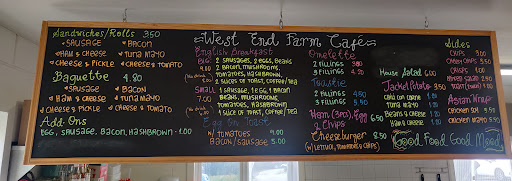 West End Farm Cafe
Sandwiches/Rolls 3.50
Sausage Bacon
Ham & Cheese Tuna Mayo
Cheese & Pickle Cheese & Tomato
Baguette 4.80
Sausage Bacon
Ham & Cheese Tuna Mayo
Cheese & Pickle Cheese & Tomato
Add-Ons
Egg, Sausage, Bacon, Hashbrown - 1.00
English Breakfast
Big 2 Sausages, 2 Eggs, Beans
9.00 2 Bacon, Mushrooms,
Tomatoes, Hashbrown,
2 Slices of Toast, Coffee/Tea
Small 1 Sausage, 1 Egg, 1 Bacon
7.00 Beans, Mushrooms,
Tomatoes, Hashbrown,
1 Slice of Toast, Coffee/Tea
Egg on Toast
w/ Tomatoes 4.00
Bacon/Sausage 5.00
Omelette
2 Fillings
3 Fillings 4.20
Toastie
2 Fillings 4.50
3 Fillings
Ham (2pcs), Egg
2 Chips 6.50
Cheeseburger 8.50
(w/ Lettuce, Tomatoes & Chips)
House Salad 6.00
Jacket Potato 3.50
Chili con Carne
Tuna Mayo
Beans & Cheese
Ham & Cheese
Sides
Chips
Cheesy Chips
Asian Wrap
Chicken
Chicken Mayo 5.50
Good Food, Good Mood